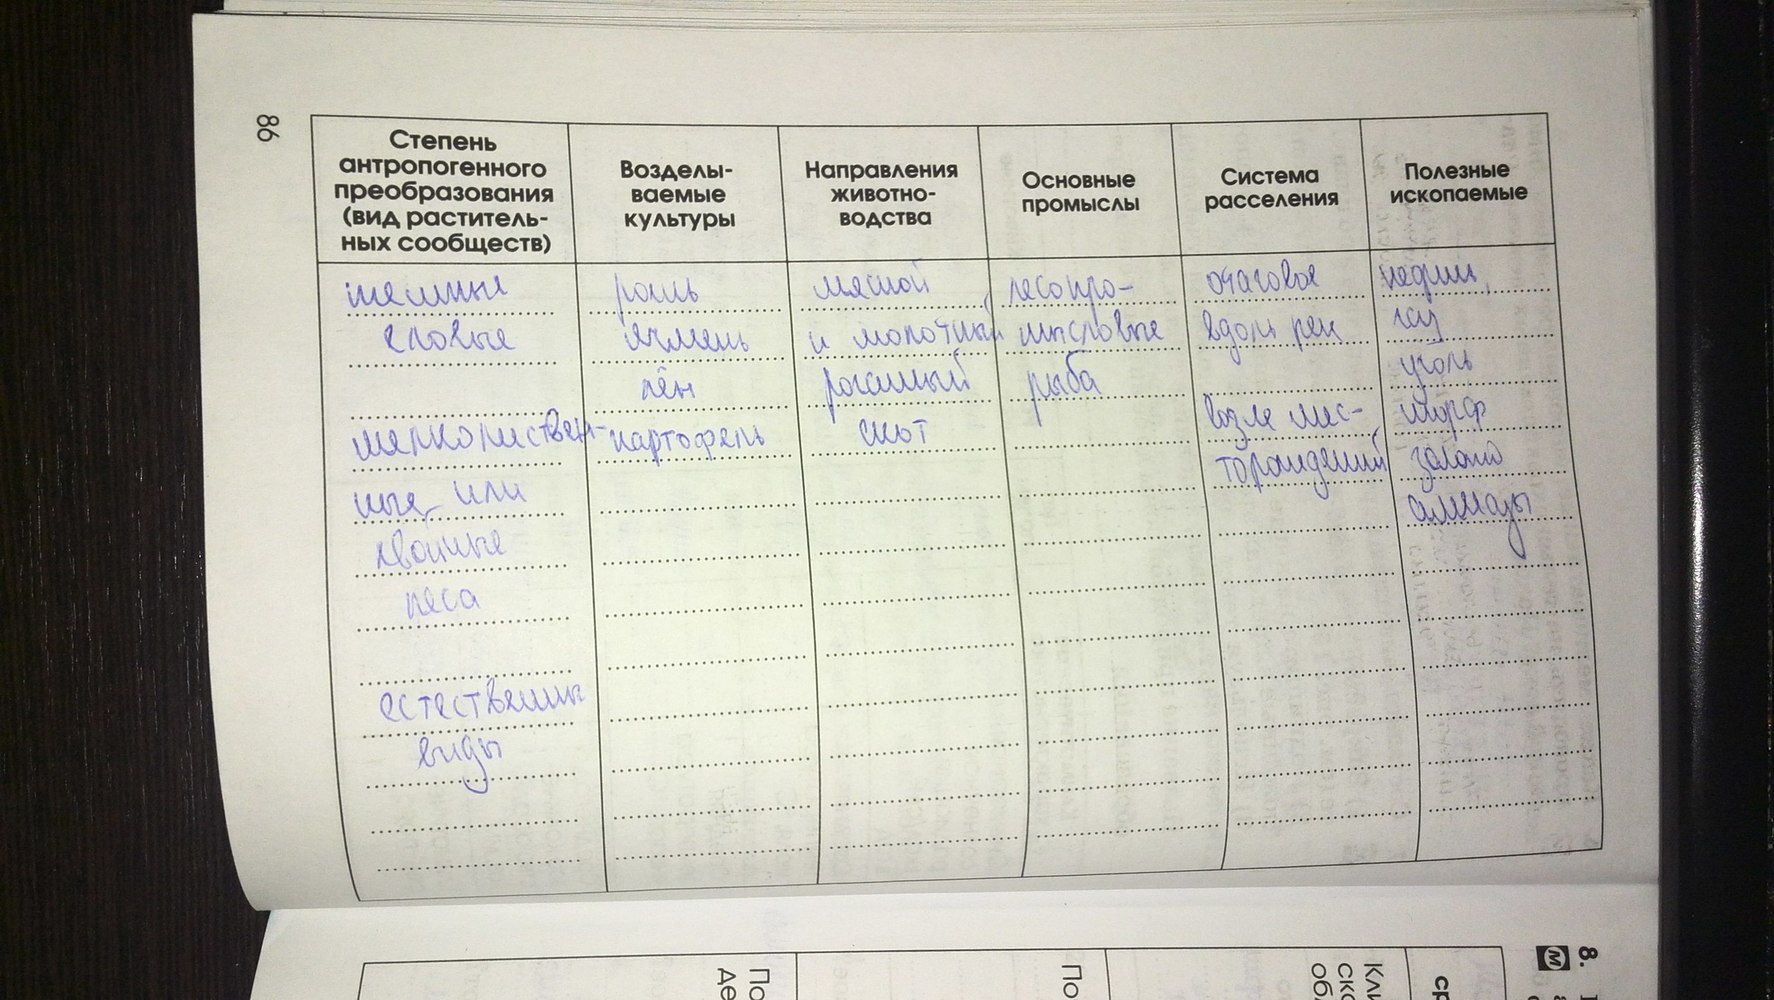 86
Степень
антропогенного
преобразования
(вид раститель-
ных сообществ)
Возделы-
ваемые
культуры
Направления
животно-
водства
Основные
промыслы
Система
расселения
Полезные
ископаемые
еловые
мелколиствен-
ные или
хвойные
леса
естественные
виды
рожь
ячмень
лён
картофель
мясной
и молочный
рогатый
скот
лесопро-
мысловые
рыба
очаговое
вдоль рек
возле мес-
торождений
нефть,
газ
уголь
торф
золото
алмазы
8.
М
По
де
По
Кли
ско
обл
ср